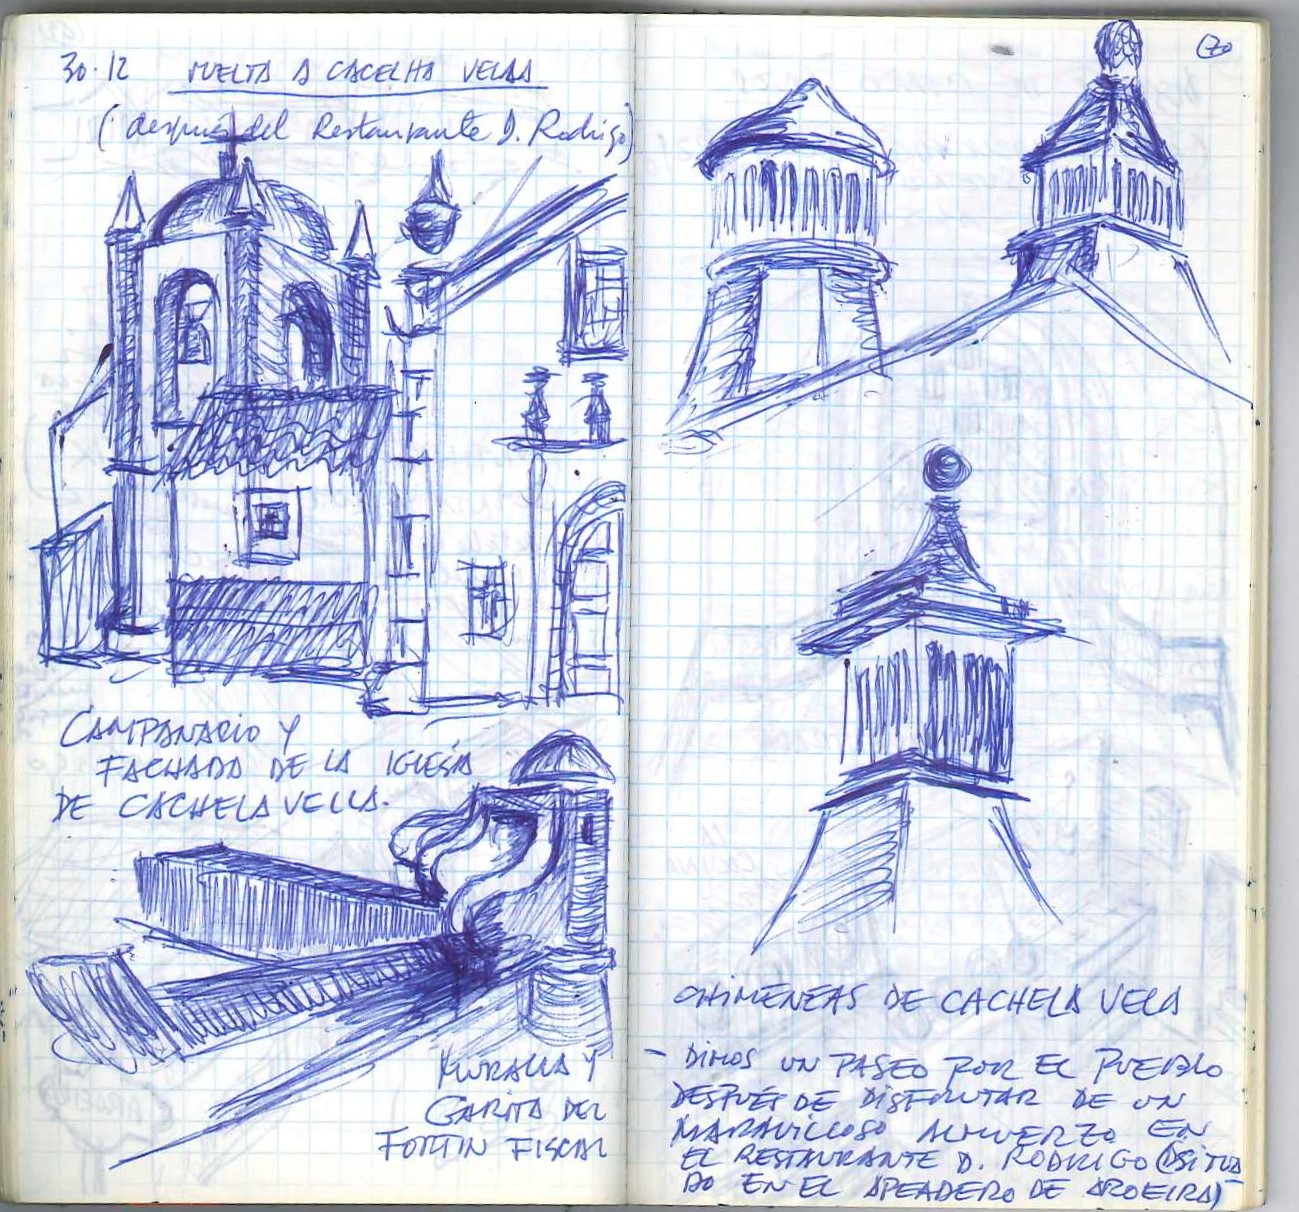 30·12 VUELTA A CACELHA VELLA
(después del Restaurante D. Rodrigo)
CAMPANARIO Y
FACHADA DE LA IGLESIA
DE CACHELA VELLA.
MURALLA Y
GARITA DEL
FORTIN FISCAL
70
CHIMENEAS DE CACHELA VELA
- DIMOS UN PASEO POR EL PUEBLO
DESPUÉS DE DISFRUTAR DE UN
MARAVILLOSO ALMUERZO EN
EL RESTAURANTE D. RODRIGO (SITUA-
DO EN EL APEADERO DE AROEIRA)